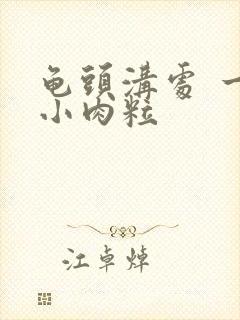 龟頭溝處 一
小肉粒
江卓焯